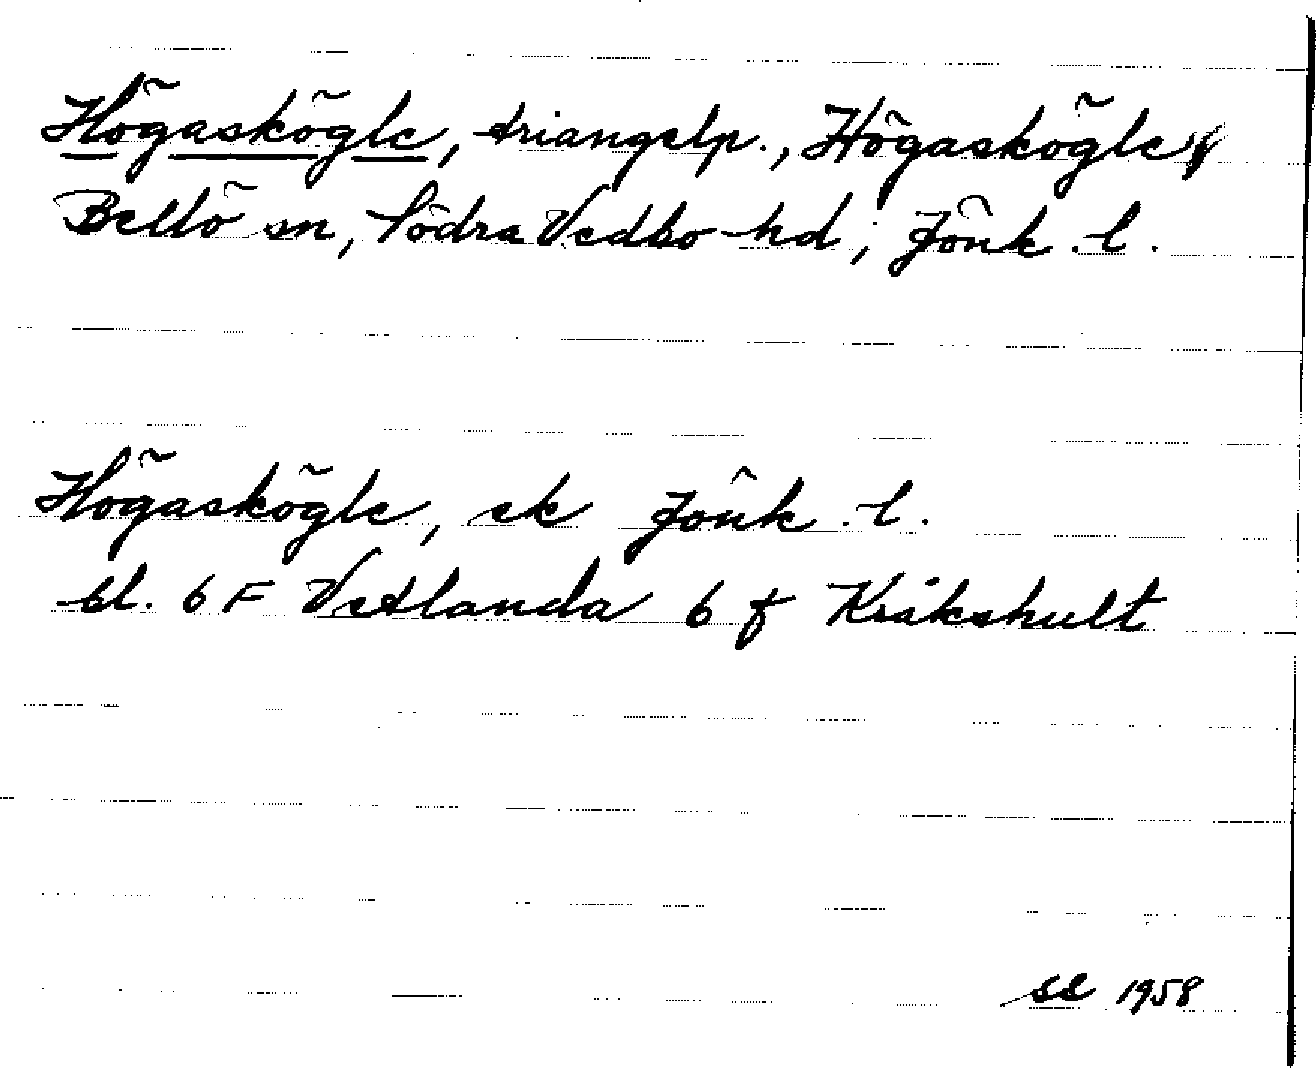 Högaskögle, triangelp., Högaskögle,
Bellö sn, Södra Vedbo hd, Jönk. l.
Högaskögle, ek Jönk. l.
bl. 6 F Vetlanda 6 f Kråkshult
SE 1958